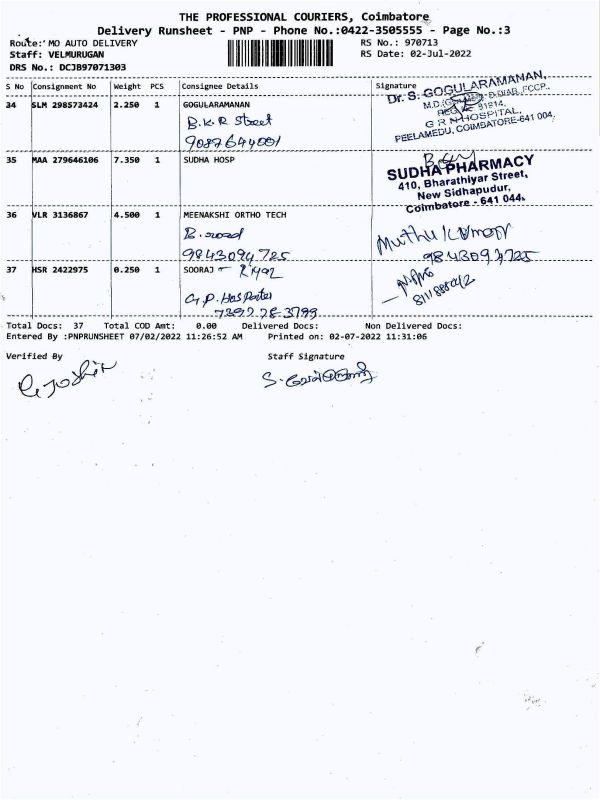 THE PROFESSIONAL COURIERS, Coimbatore
Delivery Runsheet - PNP - Phone No.:0422-3505555 - Page No.:3
Route: MO AUTO DELIVERY
RS No.: 970713
Staff: VELMURUGAN
RS Date: 02-Jul-2022
DRS No.: DCJB97071303
S No Consignment No Weight PCS Consignee Details Signature
34 SLM 298573424 2.250 1 GOGULARAMANAN
B.K.R Street
9087644001
Dr. S. GOGULARAMANAN,
G R N HOSPITAL,
PEELAMEDU, COIMBATORE-641 004.
35 MAA 279646106 7.350 1 SUDHA HOSP
SUDHA PHARMACY
410, Bharathiyar Street,
New Sidhapudur,
Coimbatore - 641 044.
36 VLR 3136867 4.500 1 MEENAKSHI ORTHO TECH
B. road
9843094725
Muthu Kumar
9843094725
37 HSR 2422975 0.250 1 SOORAJ
G.P. Hospital
Total Docs: 37 Total COD Amt: 0.00 Delivered Docs: Non Delivered Docs:
Entered By :PNPRUNSHEET 07/02/2022 11:26:52 AM Printed on: 02-07-2022 11:31:06
Verified By Staff Signature